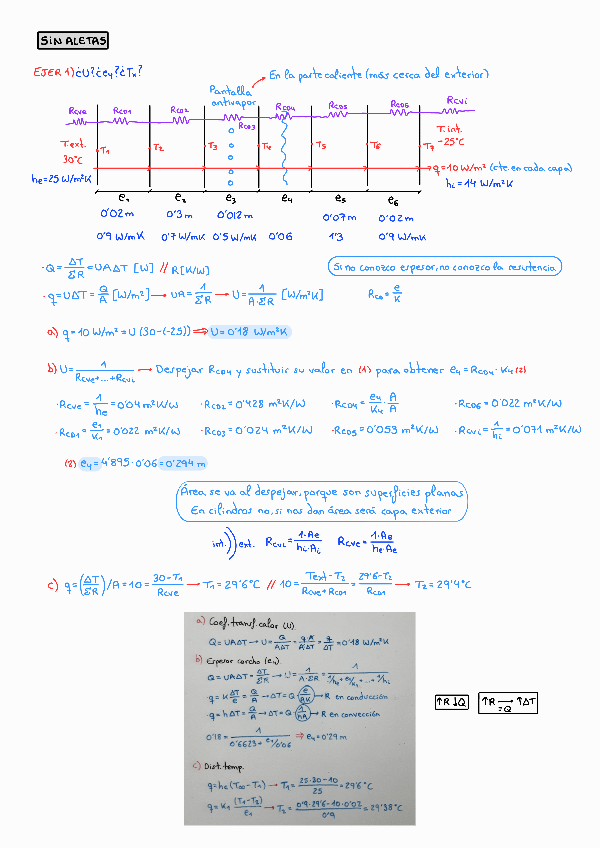 SIN ALETAS
EJER 1) ¿U? ¿e₄? ¿Tₓ?
En la parte caliente (más cerca del exterior)
Pantalla
antivapor
Rcve Rcd1 Rcd2 Rcd3 Rcd4 Rcd5 Rcd6 Rcvi
T.ext. T1 T2 T3 T4 T5 T6 T7 T.int.
30°C -25°C
q=10 W/m² (cte. en cada capa)
he=25 W/m²K hi=14 W/m²K
e1 e2 e3 e4 e5 e6
0'02m 0'3m 0'012m 0'07m 0'02m
0'9 W/mK 0'7 W/mK 0'5 W/mK 0'06 1'3 0'9 W/mK
·Q = ΔT/ΣR = UAΔT [W] // R[K/W]
Si no conozco espesor, no conozco la resistencia
·q = UΔT = Q/A [W/m²] → UA = 1/ΣR → U = 1/(A·ΣR) [W/m²K] Rcd = e/K
a) q = 10 W/m² = U (30-(-25)) ⇒ U = 0'18 W/m²K
b) U = 1/(Rcve+...+Rcvi) → Despejar Rcd4 y sustituir su valor en (1) para obtener e4 = Rcd4 · K4 (2)
·Rcve = 1/he = 0'04 m²K/W ·Rcd2 = 0'428 m²K/W ·Rcd4 = e4/K4 · A/A ·Rcd6 = 0'022 m²K/W
·Rcd1 = e1/K1 = 0'022 m²K/W ·Rcd3 = 0'024 m²K/W ·Rcd5 = 0'053 m²K/W ·Rcvi = 1/hi = 0'071 m²K/W
(2) e4 = 4'895·0'06 = 0'294 m
Área se va al despejar, porque son superficies planas
En cilindros no, si nos dan área será capa exterior
int. )) ext. Rcvi = 1·Ae/(hi·Ai) Rcve = 1·Ae/(he·Ae)
c) q = (ΔT/ΣR)/A = 10 = (30-T1)/Rcve → T1 = 29'6°C // 10 = (Text-T2)/(Rcve+Rcd1) = (29'6-T2)/Rcd1 → T2 = 29'4°C
a) Coef. transf. calor (U).
Q = UAΔT → U = Q/(AΔT) = q·A/(AΔT) = q/ΔT = 0'18 W/m²K
b) Espesor corcho (e4).
Q = UAΔT = ΔT/ΣR → U = 1/(A·ΣR) = 1/(1/he+e1/K1+...+1/hi)
·q = K ΔT/e = Q/A → ΔT = Q (e/AK) → R en conducción
·q = hΔT = Q/A → ΔT = Q (1/hA) → R en convección
0'18 = 1/(0'6623+e4/0'06) ⇒ e4 = 0'29 m
↑R ↓Q
↑R → ↑ΔT
=Q
c) Dist. temp.
q = he (T∞-T1) → T1 = (25·30-10)/25 = 29'6°C
q = K1 (T1-T2)/e1 → T2 = (0'9·29'6-10·0'02)/0'9 = 29'38°C